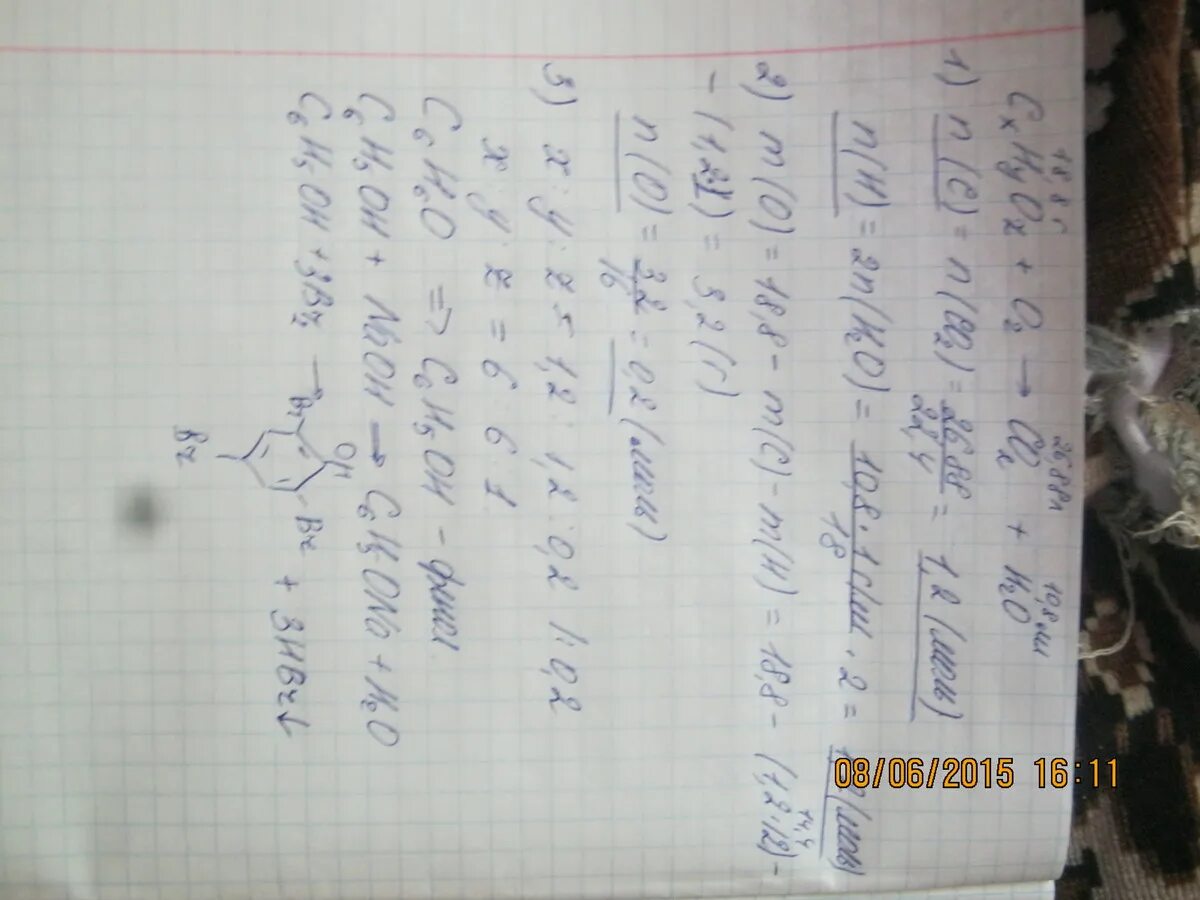 18,8 г 26,88 л 10,8 мл
CxHyOz + O2 → CO2 + H2O
1) n(C) = n(CO2) = 26,88/22,4 = 1,2 (моль)
n(H) = 2n(H2O) = 10,8·1 г/мл/18 · 2 = 1,2 (моль)
2) m(O) = 18,8 - m(C) - m(H) = 18,8 - (1,2·12) -
14,4
- (1,2·1) = 3,2 (г)
n(O) = 3,2/16 = 0,2 (моль)
3) x : y : z = 1,2 : 1,2 : 0,2 | : 0,2
x : y : z = 6 6 1
C6H6O => C6H5OH - фенол
C6H5OH + NaOH → C6H5ONa + H2O
C6H5OH + 3Br2 → + 3HBr↓
OH
Br
Br
Br
08/06/2015 16:11